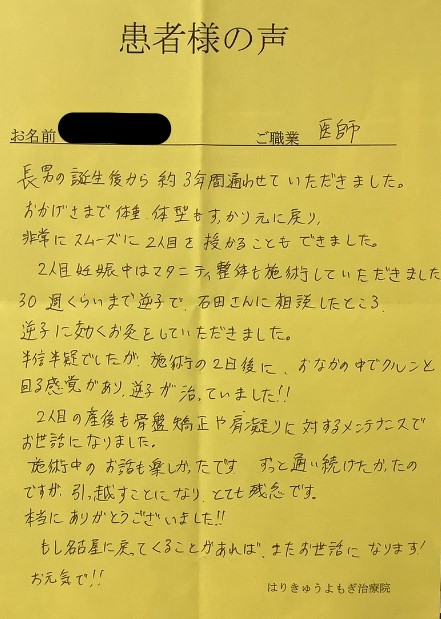 患者様の声
お名前 ご職業 医師
長男の誕生後から約3年間通わせていただきました。
おかげさまで体重、体型もすっかり元に戻り、
非常にスムーズに2人目を授かることもできました。
2人目妊娠中はマタニティ整体も施術していただきました
30週くらいまで逆子で、石田さんに相談したところ、
逆子に効くお灸をしていただきました。
半信半疑でしたが、施術の2日後に、おなかの中でクルンと
回る感覚があり、逆子が治っていました!!
2人目の産後も骨盤矯正や肩凝りに対するメンテナンスで
お世話になりました。
施術中のお話も楽しかったです。ずっと通い続けたかったの
ですが、引っ越すことになり、とても残念です。
本当にありがとうございました!!
もし名古屋に戻ってくることがあれば、またお世話になります!
お元気で!!
はりきゅうよもぎ治療院